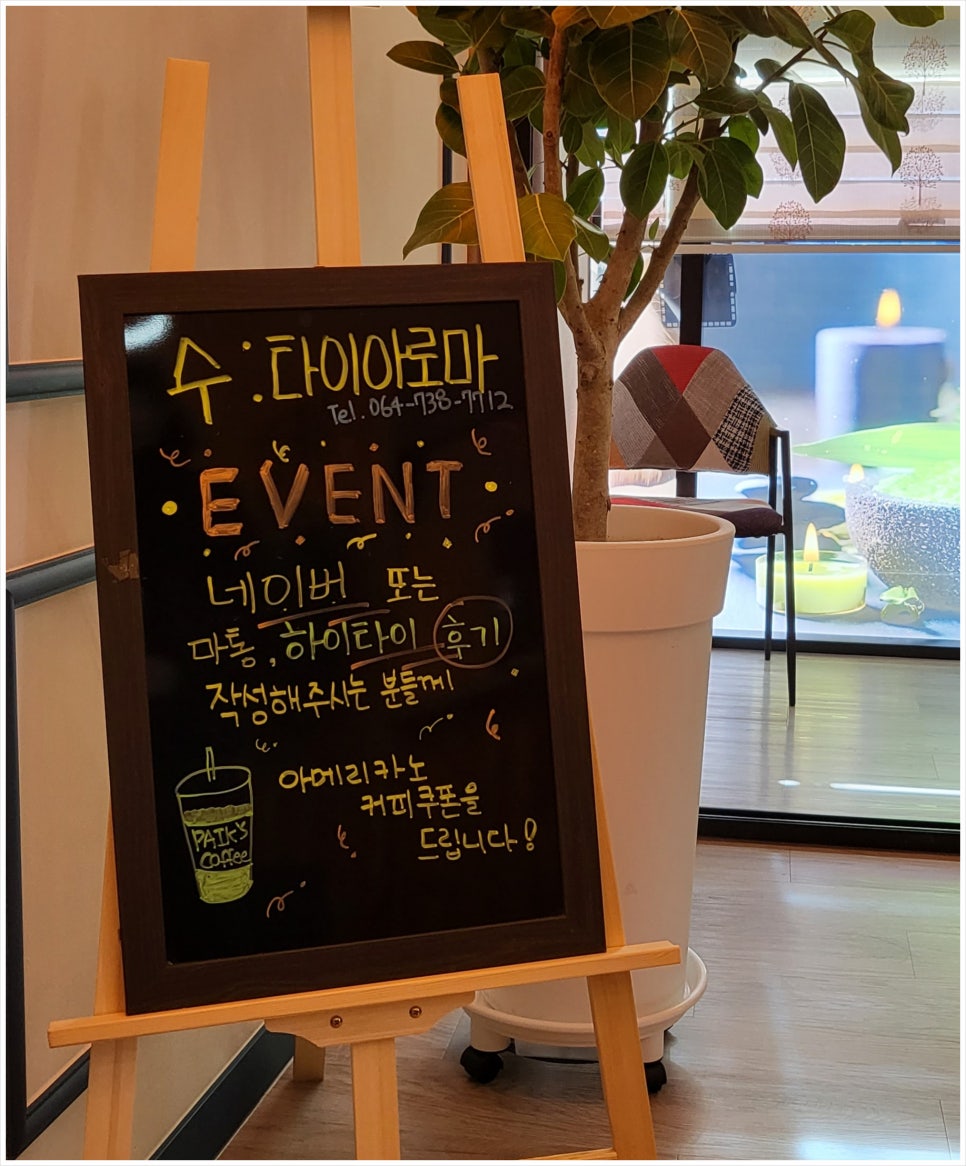 수:타이아로마
Tel.064-738-7712
EVENT
네이버 또는
마통,하이타이 후기
작성해주시는 분들께
아메리카노
커피쿠폰을
드립니다!
PAIK'S
Coffee